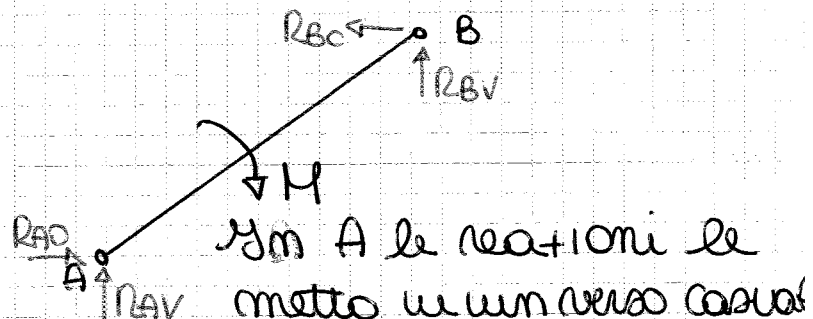 RBO B
RBV
M
RAO A In A le reazioni le
RAV metto in un verso casual